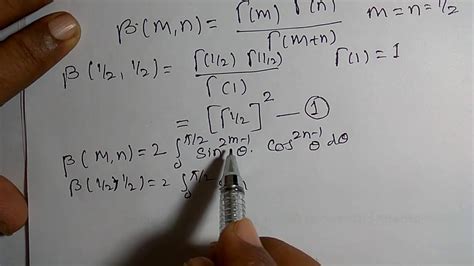 β(m,n) = Γ(m) Γ(n) / Γ(m+n) m=n=1/2
β(1/2, 1/2) = Γ(1/2) Γ(1/2) / Γ(1) Γ(1) = 1
= [Γ1/2]² — ①
β(m,n) = 2 ∫₀^π/2 sin^2m-1 θ. cos^2n-1 θ dθ
β(1/2, 1/2) = 2 ∫₀^π/2